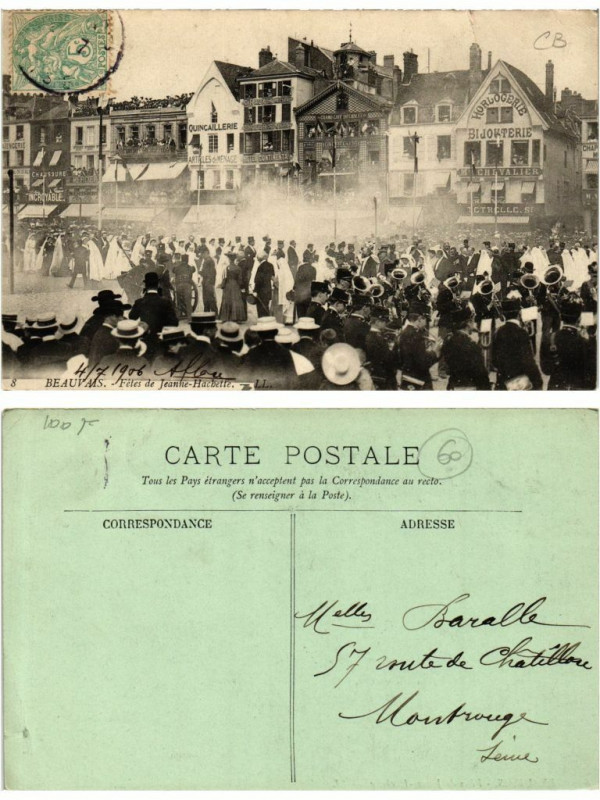 CB
QUINCAILLERIE
ARTICLES DE MÉNAGE
HORLOGERIE
BIJOUTERIE
CHEVALIER
CHAUSSURE
INCROYABLE
4/7 1906
8 BEAUVAIS. - Fêtes de Jeanne-Hachette. - LL.
100 F
60
CARTE POSTALE
Tous les Pays étrangers n'acceptent pas la Correspondance au recto.
(Se renseigner à la Poste).
CORRESPONDANCE
ADRESSE
Melles Baralle
57 route de Châtillon
Montrouge
Seine